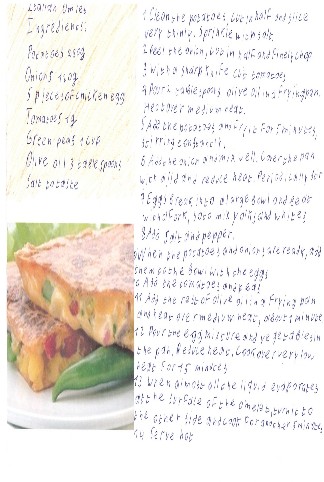 Spanish omlet
Ingredients
Potatoes 250g
Onions 150g
5 pieces of chicken egg
Tomatoes
Green peas
Olive oil 3 tablespoons
Salt to taste
1 Clean the potatoes, cut in half and slice
very thinly. Sprinkle with salt.
2 Peel the onion, cut in half and finely chop
3 with a sharp knife cut tomatoes
4 Pour tablespoons olive oil in a frying pan.
Heat over medium heat.
5 Add the potatoes and fry it for 5 minutes,
stirring
6 Add the onion and mix well. Cover the pan
with a lid and reduce heat.
7 Eggs break into a large bowl and beat
with a fork, to mix yolks and whites
8 Add salt and pepper.
9 When the potatoes and onions are ready, add
them to the bowl with the eggs
10 Add the tomatoes and peas
11 Add the rest of olive oil in a frying pan
and heat over medium heat, about 1 minute
12 Pour the egg mixture and vegetables in
the pan. Reduce heat. Cook over very low
heat for 15 minutes
13 When almost all the liquid evaporates
at the surface of the omelet, turn it to
the other side and cook for another 5 minutes
14 Serve hot